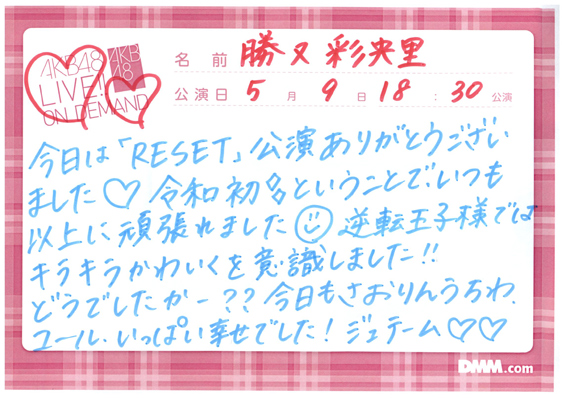 AKB48
LIVE!!
ON DEMAND
AKB
48
名前 勝又彩央里
公演日 5月9日 18:30公演
今日は「RESET」公演ありがとうござい
ました♡ 令和初⚢ということで、いつも
以上に頑張れました☺ 逆転王子様では
キラキラかわいくを意識しました!!
どうでしたかー?? 今日もさおりんうちわ、
コール、いっぱい幸せでした! ジュテーム♡♡
DMM.com